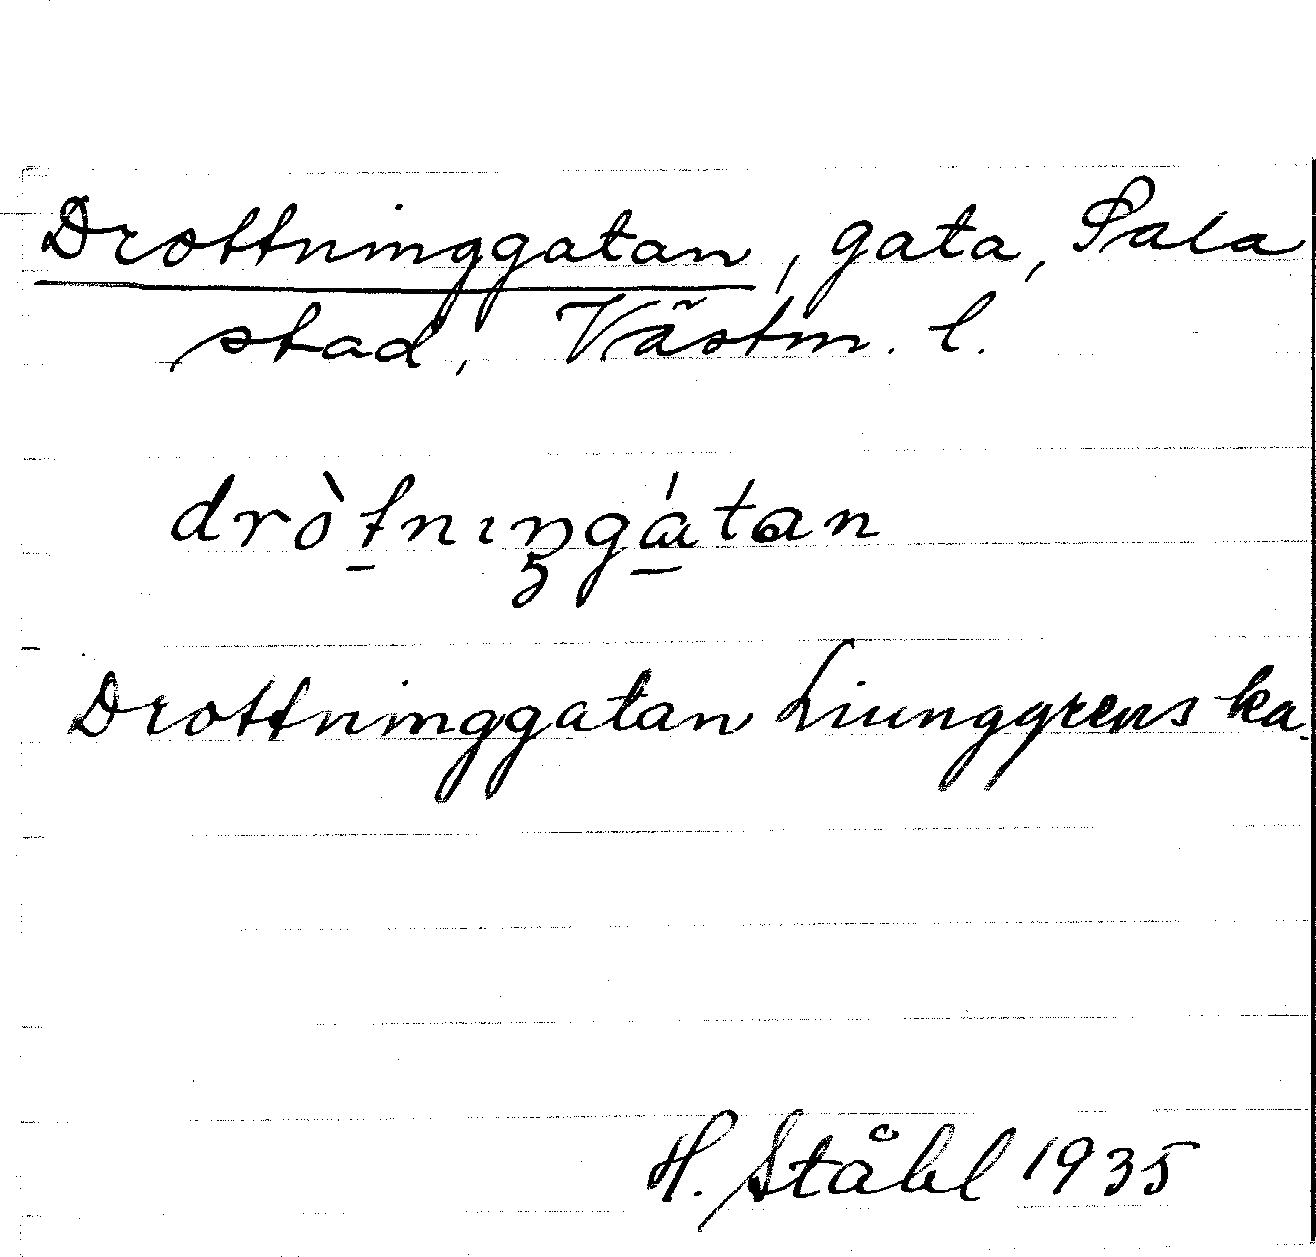 Drottninggatan, gata, Sala
stad, Västm. l.
dròtnıŋgátan
Drottninggatan Liunggrens ka.
H. Ståhl 1935